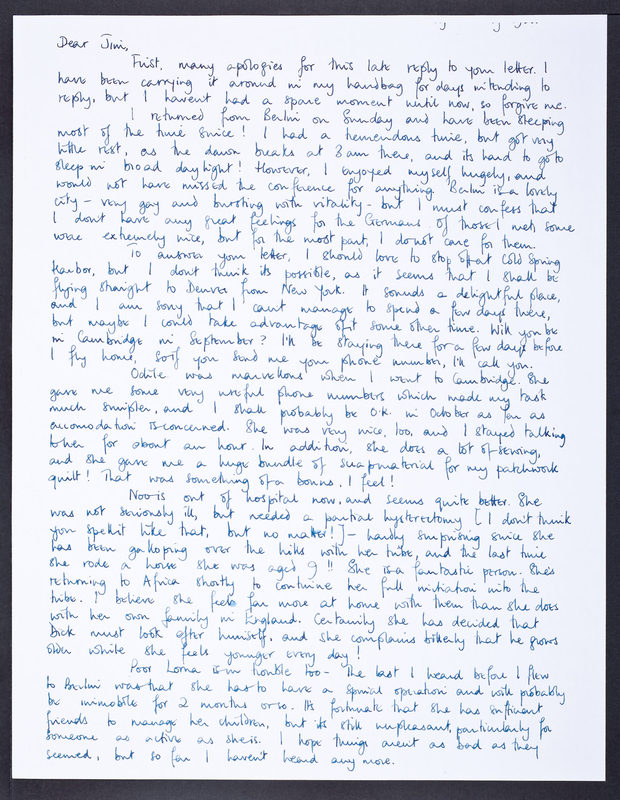 Dear Jim,
First, many apologies for this late reply to your letter. I
have been carrying it around in my handbag for days intending to
reply, but I havent had a spare moment until now, so forgive me.
I returned from Berlin on Sunday and have been sleeping
most of the time since! I had a tremendous time, but got very
little rest, as the dawn breaks at 3am there, and its hard to go to
sleep in broad daylight! However, I enjoyed myself hugely, and
would not have missed the conference for anything. Berlin is a lovely
city - very gay and bursting with vitality - but I must confess that
I dont have any great feelings for the Germans. Of those I met, some
were extremely nice, but for the most part, I do not care for them.
To answer your letter, I should love to stop off at Cold Spring
Harbor, but I dont think its possible, as it seems that I shall be
flying straight to Denver from New York. It sounds a delightful place,
and I am sorry that I cant manage to spend a few days there,
but maybe I could take advantage of it some other time. Will you be
in Cambridge in September? I'll be staying there for a few days before
I fly home, so if you send me your phone number, I'll call you.
Odile was marvellous when I went to Cambridge. She
gave me some very useful phone numbers which made my task
much simpler, and I shall probably be O.K. in October as far as
accomodation is concerned. She was very nice, too, and I stayed talking
to her for about an hour. In addition, she does a lot of sewing,
and she gave me a huge bundle of scrap material for my patchwork
quilt! That was something of a bonus, I feel!
Noo is out of hospital now, and seems quite better. She
was not seriously ill, but needed a partial hysterectomy [I don't think
you spell it like that, but no matter!] - hardly surprising since she
has been galloping over the hills with her tribe, and the last time
she rode a horse she was aged 9!! She is a fantastic person. She's
returning to Africa shortly to continue her full initiation into the
tribe. I believe she feels far more at home with them than she does
with her own family in England. Certainly she has decided that
Dick must look after himself, and she complains bitterly that he grows
older while she feels younger every day!
Poor Lorna is in trouble too - The last I heard before I flew
to Berlin was that she has to have a spinal operation and will probably
be immobile for 2 months or so. Its fortunate that she has sufficient
friends to manage her children, but its still unpleasant, particularly for
someone as active as she is. I hope things arent as bad as they
seemed, but so far I haven't heard any more.